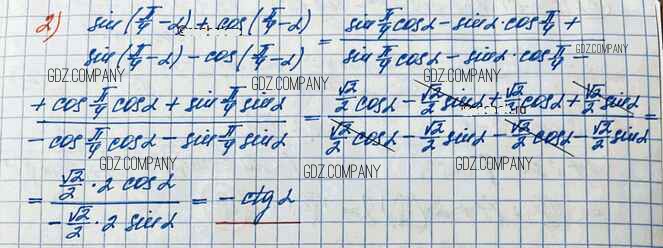 2) (sin(π/4 - α) + cos(π/4 - α)) / (sin(π/4 - α) - cos(π/4 - α)) = (sin π/4 cos α - sin α · cos π/4 +) / (sin π/4 cos α - sin α · cos π/4 -)
GDZ.COMPANY
GDZ.COMPANY
GDZ.COMPANY
GDZ.COMPANY
(+ cos π/4 cos α + sin π/4 sin α) / (- cos π/4 cos α - sin π/4 sin α) = (√2/2 cos α - √2/2 sin α + √2/2 cos α + √2/2 sin α) / (√2/2 cos α - √2/2 sin α - √2/2 cos α - √2/2 sin α) =
GDZ.COMPANY
GDZ.COMPANY
GDZ.COMPANY
GDZ.COMPANY
= (√2/2 · 2 cos α) / (-√2/2 · 2 sin α) = - ctg α